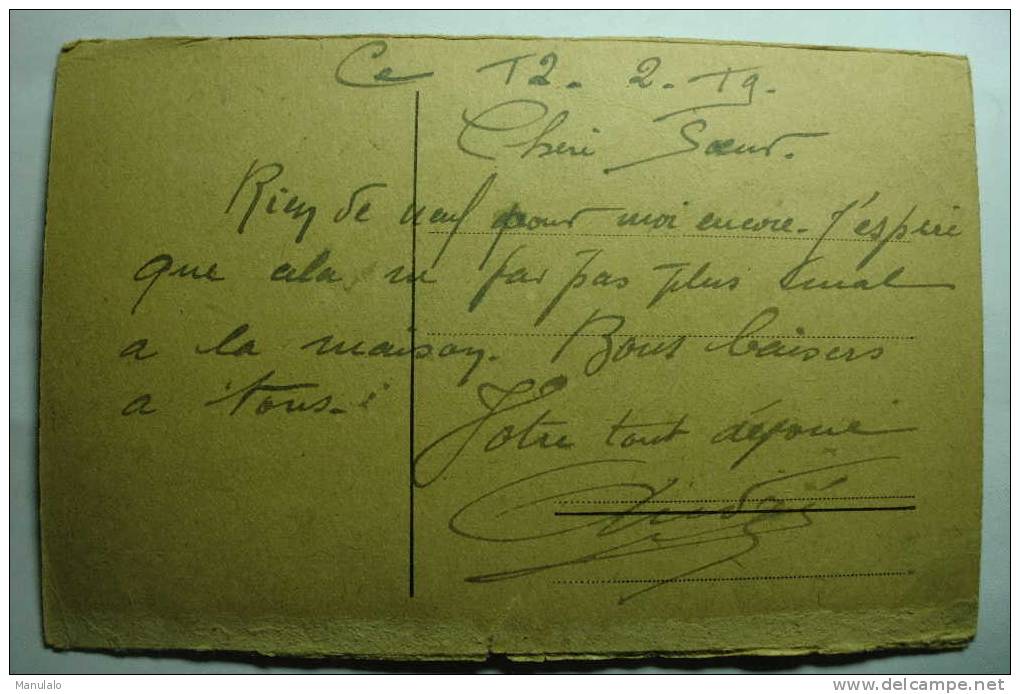 Ce 12. 2. 19.
Cheri Sœur.
Rien de neuf pour moi encore. J'espere
que cela ne fai pas plus mal
a la maison. Bons baisers
a tous.
Votre tout dévoué
André
Manulalo
www.delcampe.net